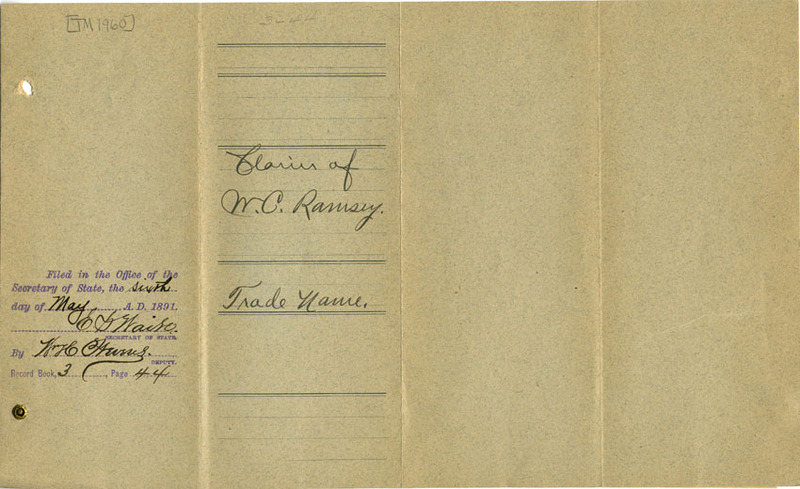 [TM1960]
3-44
Claim of
W.C. Ramsey.
Trade Name.
Filed in the Office of the
Secretary of State, the sixth
day of May A.D. 1891.
E G Waite.
SECRETARY OF STATE.
By Wm H
DEPUTY.
Record Book, 3, Page 44